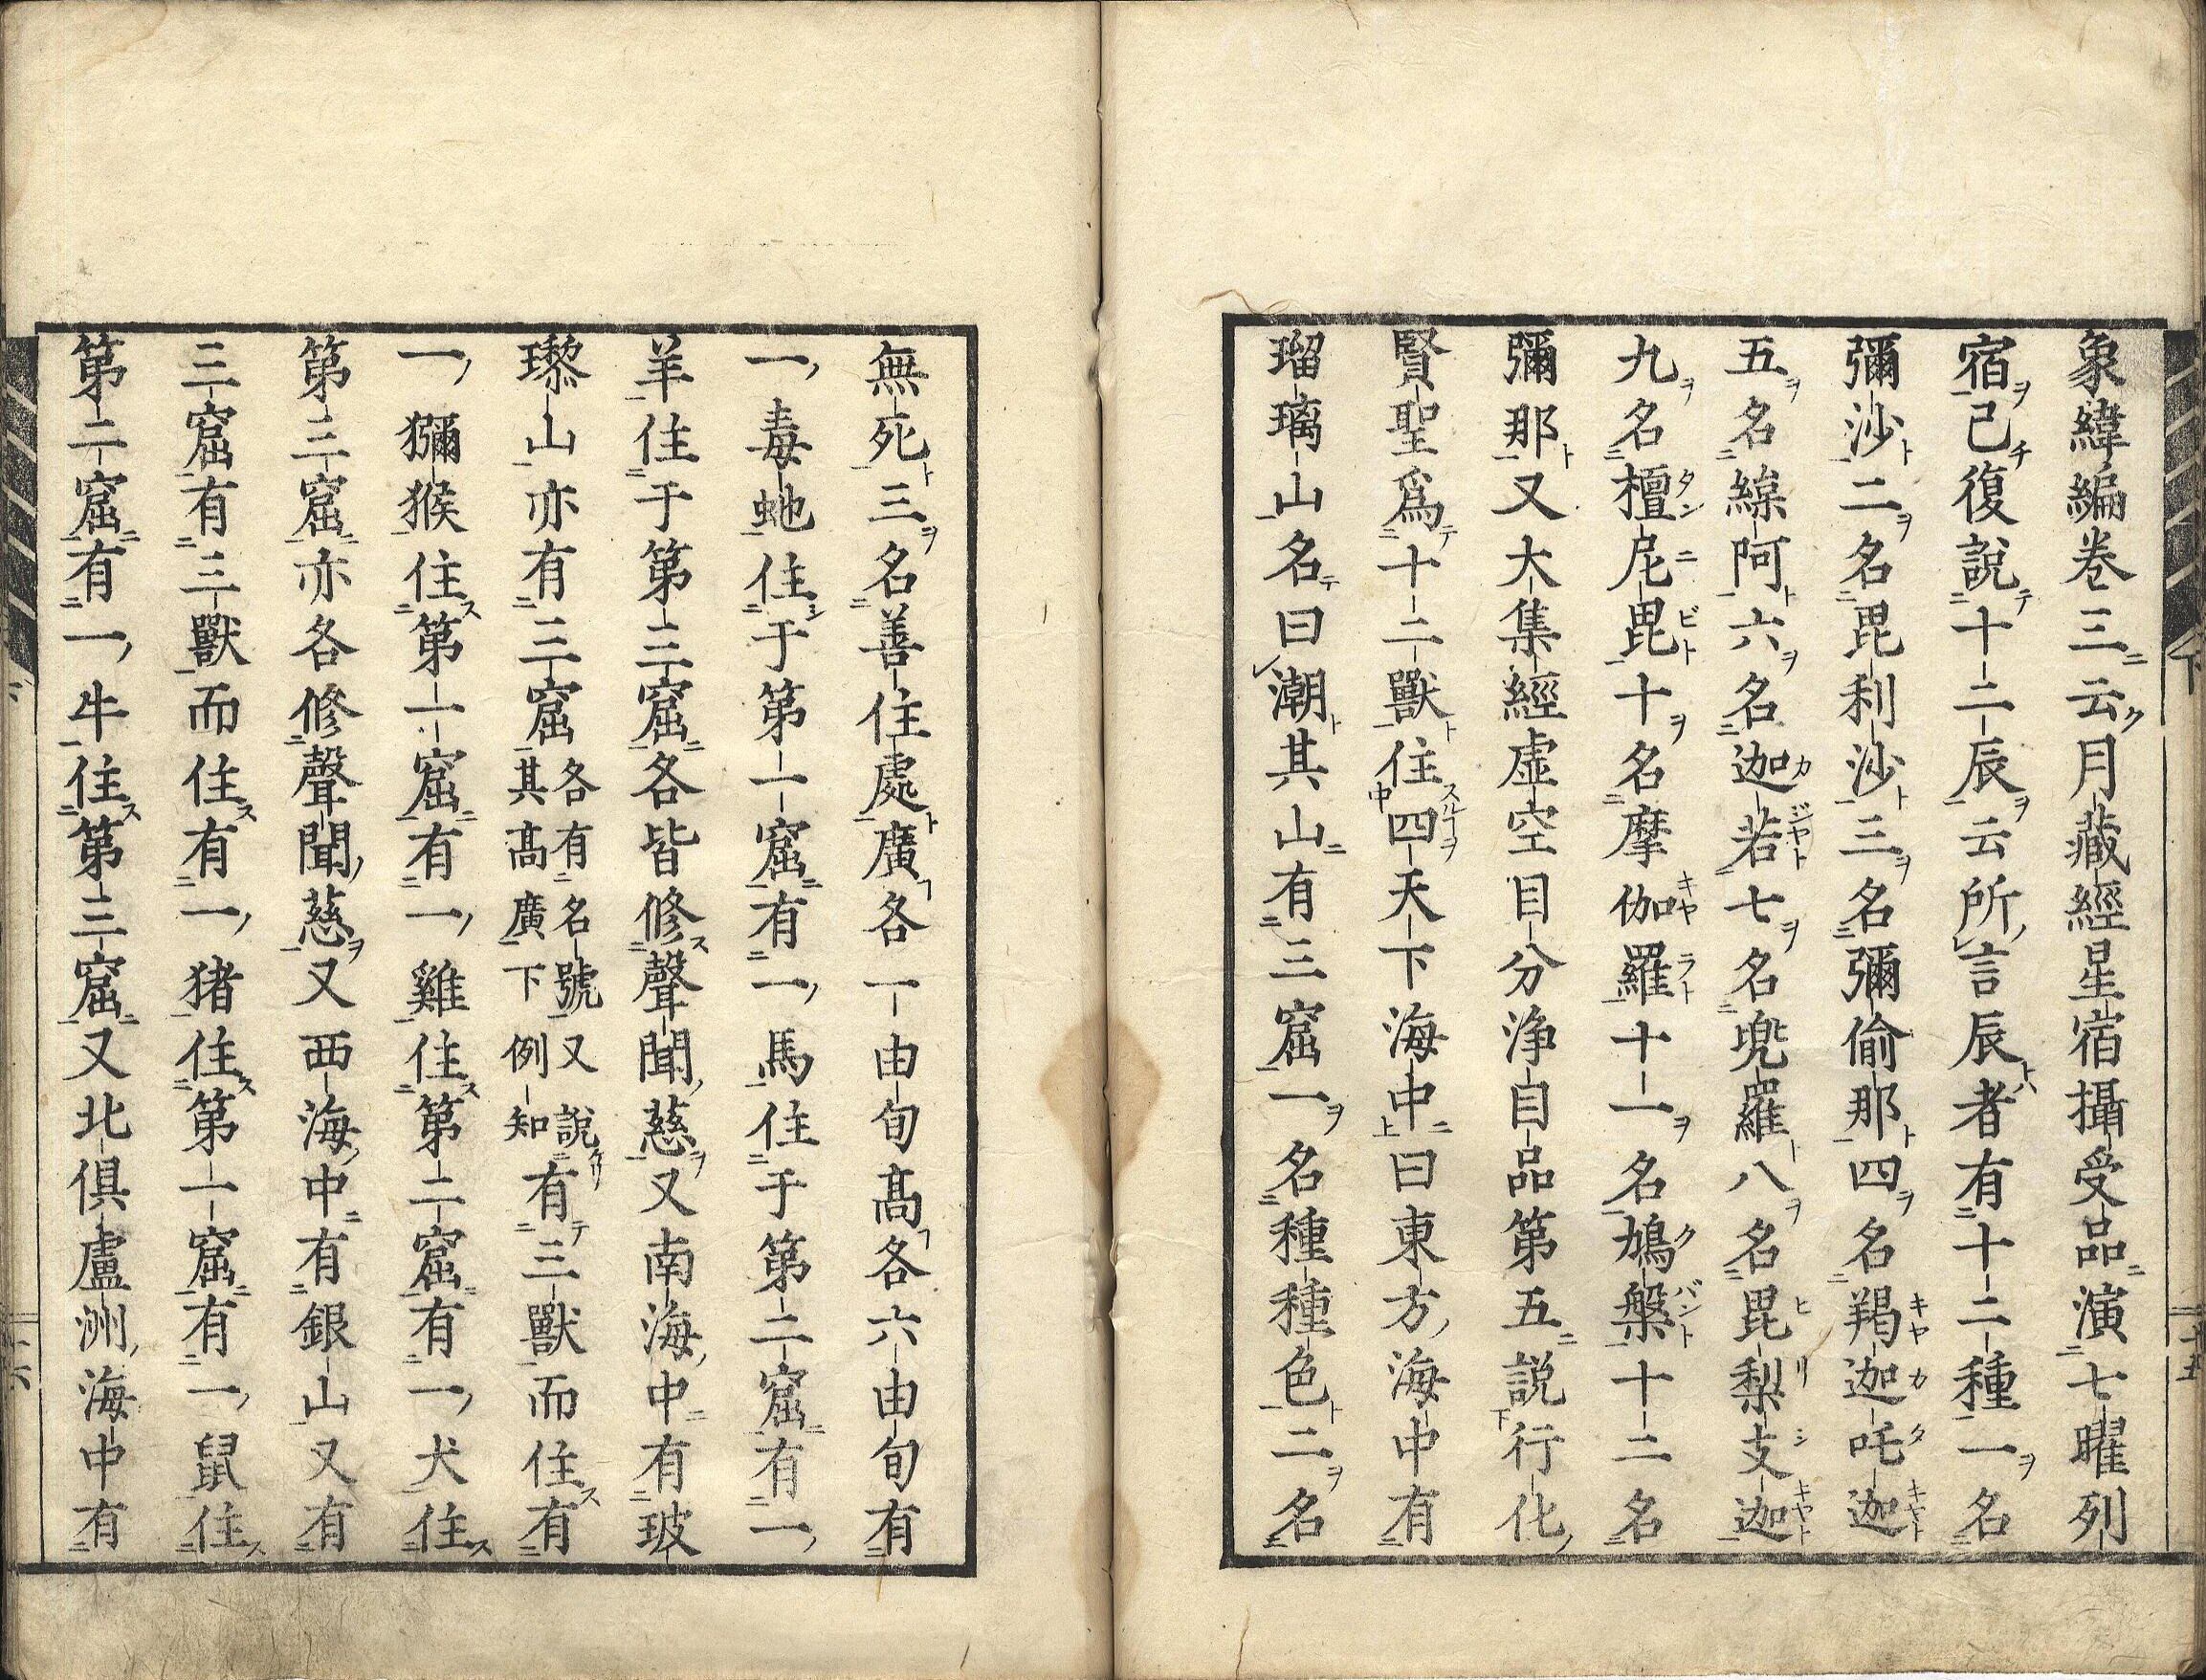 象緯編巻三云月藏經星宿攝受品演七曜列
宿已復説十二辰云所言辰者有十二種一名
彌沙二名毘利沙三名彌偷那四名羯迦吒迦
五名綟阿六名迦若七名兜羅八名毘梨支迦
九名檀尼毘十名摩伽羅十一名鳩槃十二名
彌那又大集經虛空目分浄自品第五説行化
賢聖爲十二獸住四天下海中曰東方海中有
瑠璃山名曰潮其山有三窟一名種種色二名
無死三名善住處廣各一由旬髙各六由旬有
一毒虵住于第一窟有一馬住于第二窟有一
羊住于第三窟各皆修聲聞慈又南海中有玻
瓈山亦有三窟各有名號又説其髙廣下例知有三獸而住有
一獼猴住第一窟有一雞住第二窟有一犬住
第三窟亦各修聲聞慈又西海中有銀山又有
三窟有三獸而住有一猪住第一窟有一鼠住
第二窟有一牛住第三窟又北俱盧洲海中有